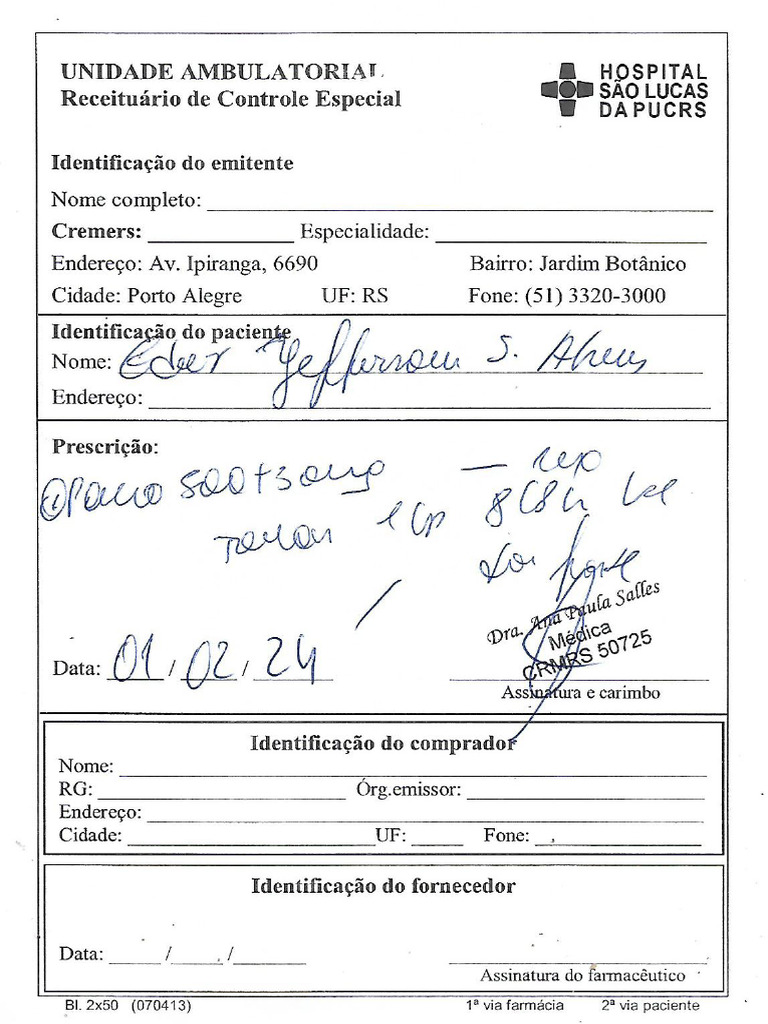 UNIDADE AMBULATORIAL
Receituário de Controle Especial
HOSPITAL
SÃO LUCAS
DA PUCRS
Identificação do emitente
Nome completo:
Cremers: Especialidade:
Endereço: Av. Ipiranga, 6690 Bairro: Jardim Botânico
Cidade: Porto Alegre UF: RS Fone: (51) 3320-3000
Identificação do paciente
Nome: Eder Jefferson S.
Endereço:
Prescrição:
① Paco 500+30mg
Tomar 1 Cp 8/8h
dor forte
Dra. Ana Paula Salles
Médica
CRMRS 50725
Data: 01 / 02 / 24
Assinatura e carimbo
Identificação do comprador
Nome:
RG: Órg.emissor:
Endereço:
Cidade: UF: Fone:
Identificação do fornecedor
Data: / /
Assinatura do farmacêutico
Bl. 2x50 (070413) 1ª via farmácia 2ª via paciente